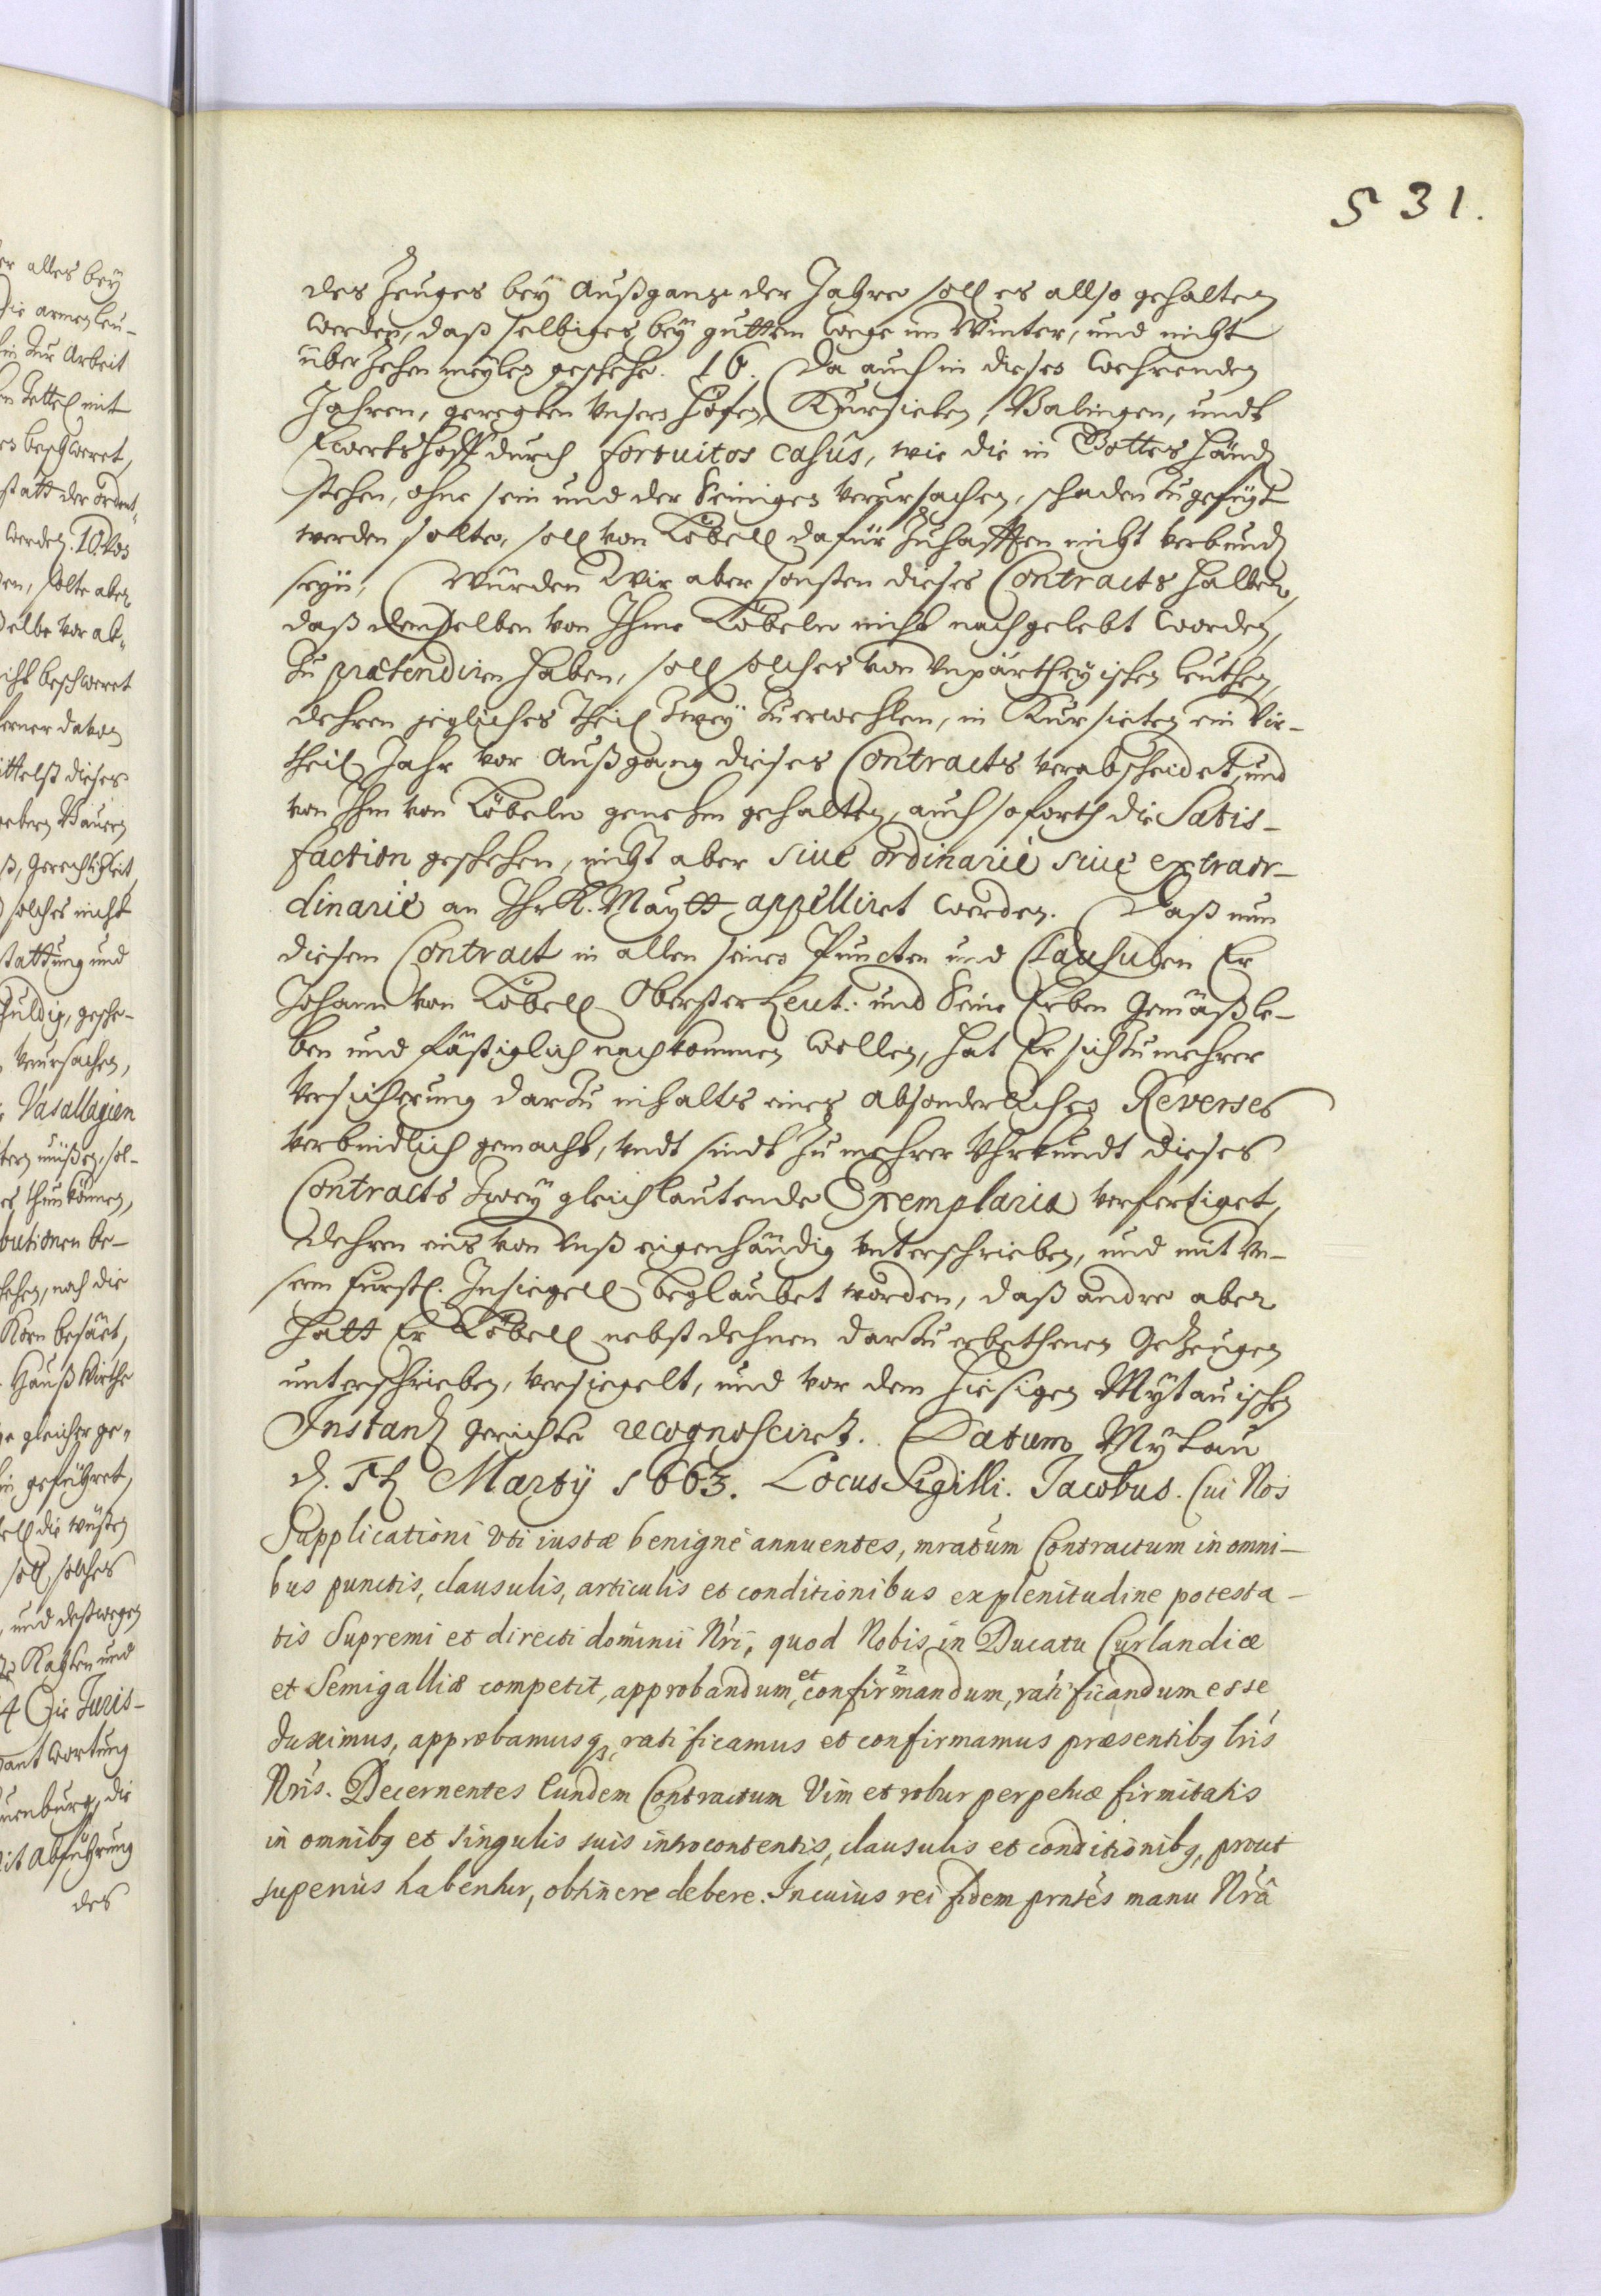 531.
des Zeuges bey Außgang der Jahre soll es allso gehalten
werden, daß selbiges bey guttem wege im Winter, und nicht
über zehen meylen geschehe. 16. Da auch in diesen wehrenden
Jahren, geregten Unsern Höfen, Kursieten, Balingen, undt
hoff durch fortuitos casûs, wie die in Gottes händ
stehen, ohne sein und der Seinigen verursachen, schaden zugefügt
werden solte, soll von Löbell dafür zuhafften nicht verbund
seyn, Würden Wir aber sonsten dieses Contracts halben,
daß demselben von Ihme Löbeln nicht nachgelebt worden,
zu prætendiren haben, soll solches von unpartheyischen leuthen,
dehren jegliches Theil Zwey zuerwehlen, in Kursieten ein Vir-
theil Jahr vor Außgang dieses Contracts verabscheidet, und
von Ihm von Löbeln genehm gehalten, auch soforth die Satis-
faction geschehen, nicht aber siue ordinariè siue extraor-
dinariè an Ihr K. Maytt appelliret werden. Daß nun
diesem Contract in allen seinen Puncten und Clausulen Er
Johann von Löbell Obrister Leut: und Seine Erben Gemäß le-
ben und fästiglich nachkommen wollen, hat Er sich zu mehrer
Versicherung darzu inhalts eines absonderlichen Reverses
verbindlich gemacht, undt sindt zu mehrer Uhrkundt dieses
Contracts Zwey gleichlautende Exemplaria verfertiget,
dehren eins von Unß eigenhändig unterschrieben, und mit Un-
serm Fürstl. Insiegell beglaubet worden, daß andre aber
hatt Er Löbell nebst dehnen darzu erbethenen Gezeugen
unterschrieben, versiegelt, und vor dem hiesigen Mytauischen
Instantz gerichte recognosciret. Datum Mytau
d. Martÿ 1663. Locus Sigilli. Jacobus. Cui Nos
Supplicationi vti iustæ benignè annuentes, Contractum in omni-
bus punctis, clausulis, articulis et conditionibus ex plenitudine potesta-
tis Supremi et directi dominii Nri, quod Nobis in Ducatu Curlandiæ
et Semigalliæ competit, approbandum, et confirmandum, ratificandum esse
duximus, approbamusq, ratificamus et confirmamus præsentibq lris
Nris. Decernentes Eundem Contractum Vim et robur perpetuæ firmitatis
in omnibq et singulis suis introcontentis, clausulis et conditionibq, prout
superius habentur, obtinere debere. In cuius rei fidem prntes manu Nrâ